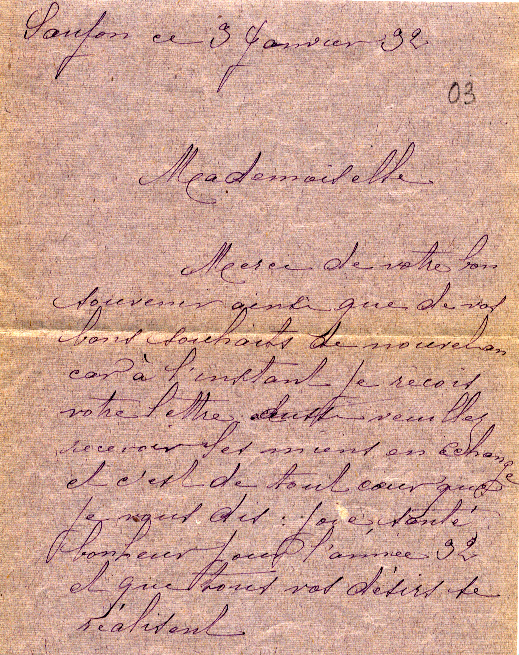 Saujon ce 3 Janvier 32
03
Mademoiselle
Merci de votre bon
souvenir ainsi que de vos
bons souhaits de nouvel an
car à l'instant je reçois
votre lettre. Aussi veuillez
recevoir les miens en échange
et c'est de tout cœur que
je vous dis : joie santé
bonheur pour l'année 32
et que tous vos désirs se
réalisent